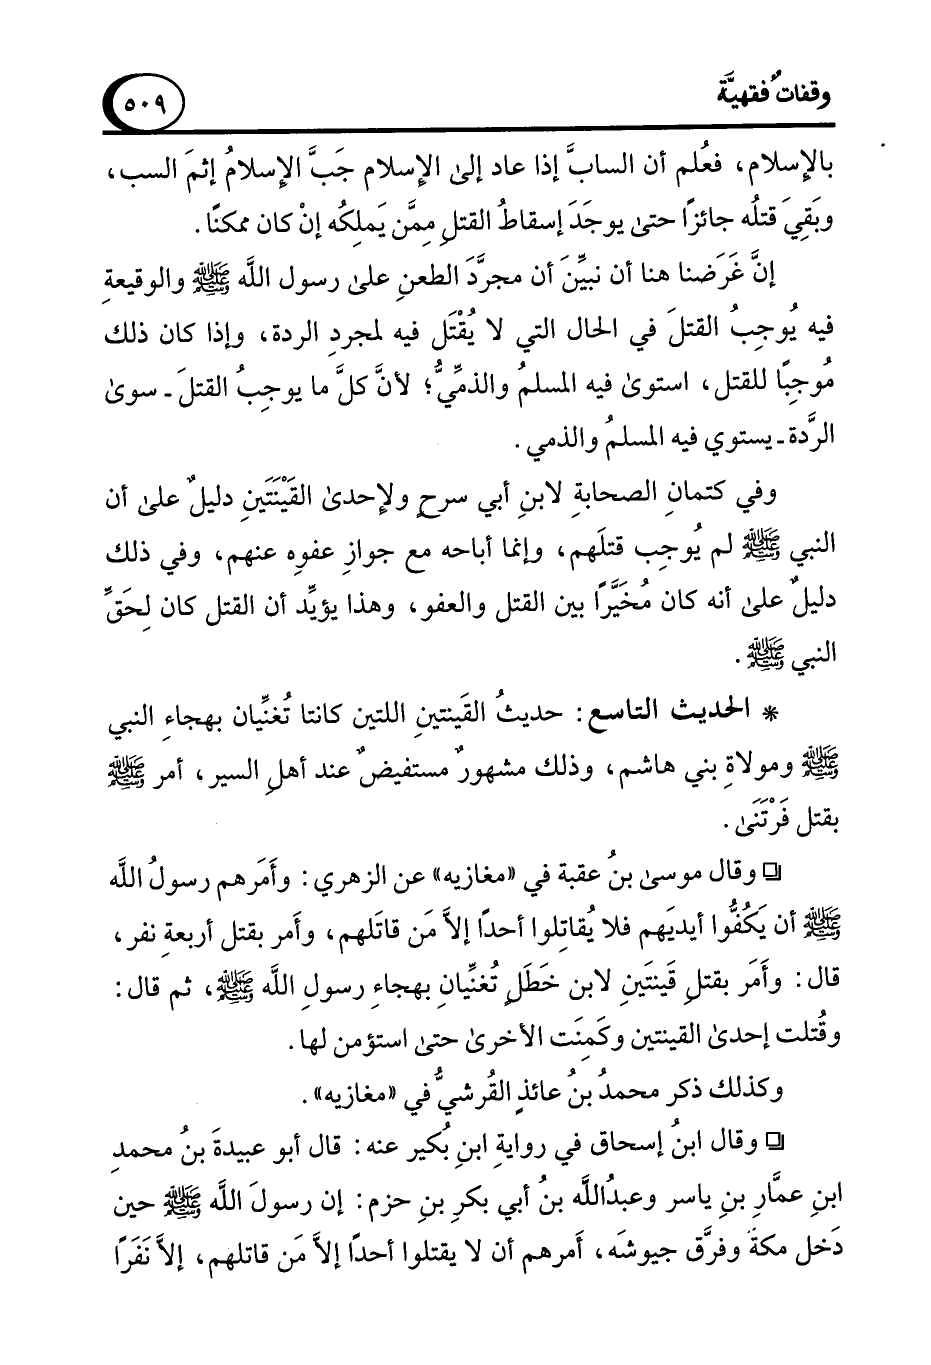 وقفات فقهيَّة
٥٠٩
بالإِسلام، فعُلم أن السابَّ إذا عاد إلىٰ الإِسلام جَبَّ الإِسلامُ إثمَ السب،
وبَقِيَ قتلُه جائزًا حتىٰ يوجَدَ إسقاطُ القتلِ مِمَّن يَملِكُه إنْ كان ممكنًا.
إنَّ غَرَضنا هنا أن نبيِّنَ أن مجرَّدَ الطعنِ علىٰ رسول اللَّه ﷺ والوقيعةِ
فيه يُوجِبُ القتلَ في الحال التي لا يُقْتَل فيه لمجردِ الردة، وإذا كان ذلك
مُوجبًا للقتل، استوىٰ فيه المسلمُ والذمِّيُّ؛ لأنَّ كلَّ ما يوجبُ القتلَ ـ سوىٰ
الرَّدة ـ يستوي فيه المسلمُ والذمي.
وفي كتمانِ الصحابةِ لابنِ أبي سرحٍ ولإحدىٰ القَيْنَتَينِ دليلٌ علىٰ أن
النبي ﷺ لم يُوجب قتلَهم، وإنما أباحه مع جوازِ عفوِه عنهم، وفي ذلك
دليلٌ علىٰ أنه كان مُخَيَّرًا بين القتل والعفو، وهذا يؤيِّد أن القتل كان لِحَقِّ
النبي ﷺ.
* الحديث التاسع: حديثُ القَينتينِ اللتين كانتا تُغنِّيان بهجاءِ النبي
ﷺ ومولاةِ بني هاشم، وذلك مشهورٌ مستفيضٌ عند أهلِ السير، أمر ﷺ
بقتل فَرْتَنَىٰ.
❏ وقال موسىٰ بنُ عقبة في «مغازيه» عن الزهري: وأمَرهم رسولُ اللَّه
ﷺ أن يَكُفُّوا أيديَهم فلا يُقاتِلوا أحدًا إلاَّ مَن قاتَلهم، وأمر بقتل أربعةِ نفر،
قال: وأمَر بقتلِ قَينتَينِ لابن خَطَلٍ تُغنِّيانِ بهجاءِ رسولِ اللَّه ﷺ، ثم قال:
وقُتلت إحدىٰ القينتين وكَمِنَت الأخرىٰ حتىٰ استؤمن لها.
وكذلك ذكر محمدُ بنُ عائذٍ القُرشيُّ في «مغازيه».
❏ وقال ابنُ إسحاق في روايةِ ابنِ بُكير عنه: قال أبو عبيدةَ بنُ محمدِ
ابنِ عمَّارِ بنِ ياسر وعبدُاللَّه بنُ أبي بكرِ بنِ حزم: إن رسولَ اللَّه ﷺ حين
دَخل مكةَ وفرَّق جيوشَه، أمرهم أن لا يقتلوا أحدًا إلاَّ مَن قاتلهم، إلاَّ نَفَرًا